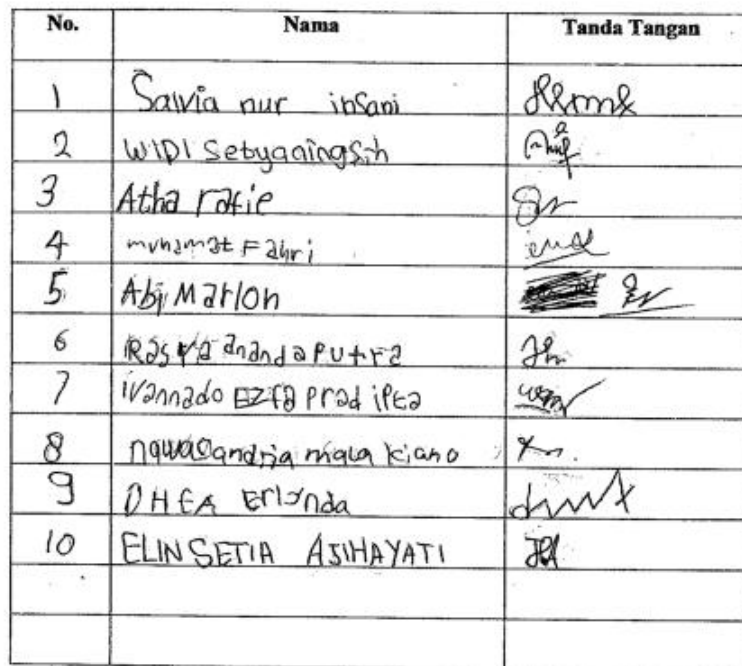 No. Nama Tanda Tangan
1 Sawia nur insani
2 WIDI Setyaningsih
3 Atha rafie
4 muhamat Fahri
5 Abi Marlon
6 Rasya ananda Putra
7 ivannado EZfa Prad iPta
8 kiano
9 DHEA Erlanda
10 ELIN SETIA AJIHAYATI